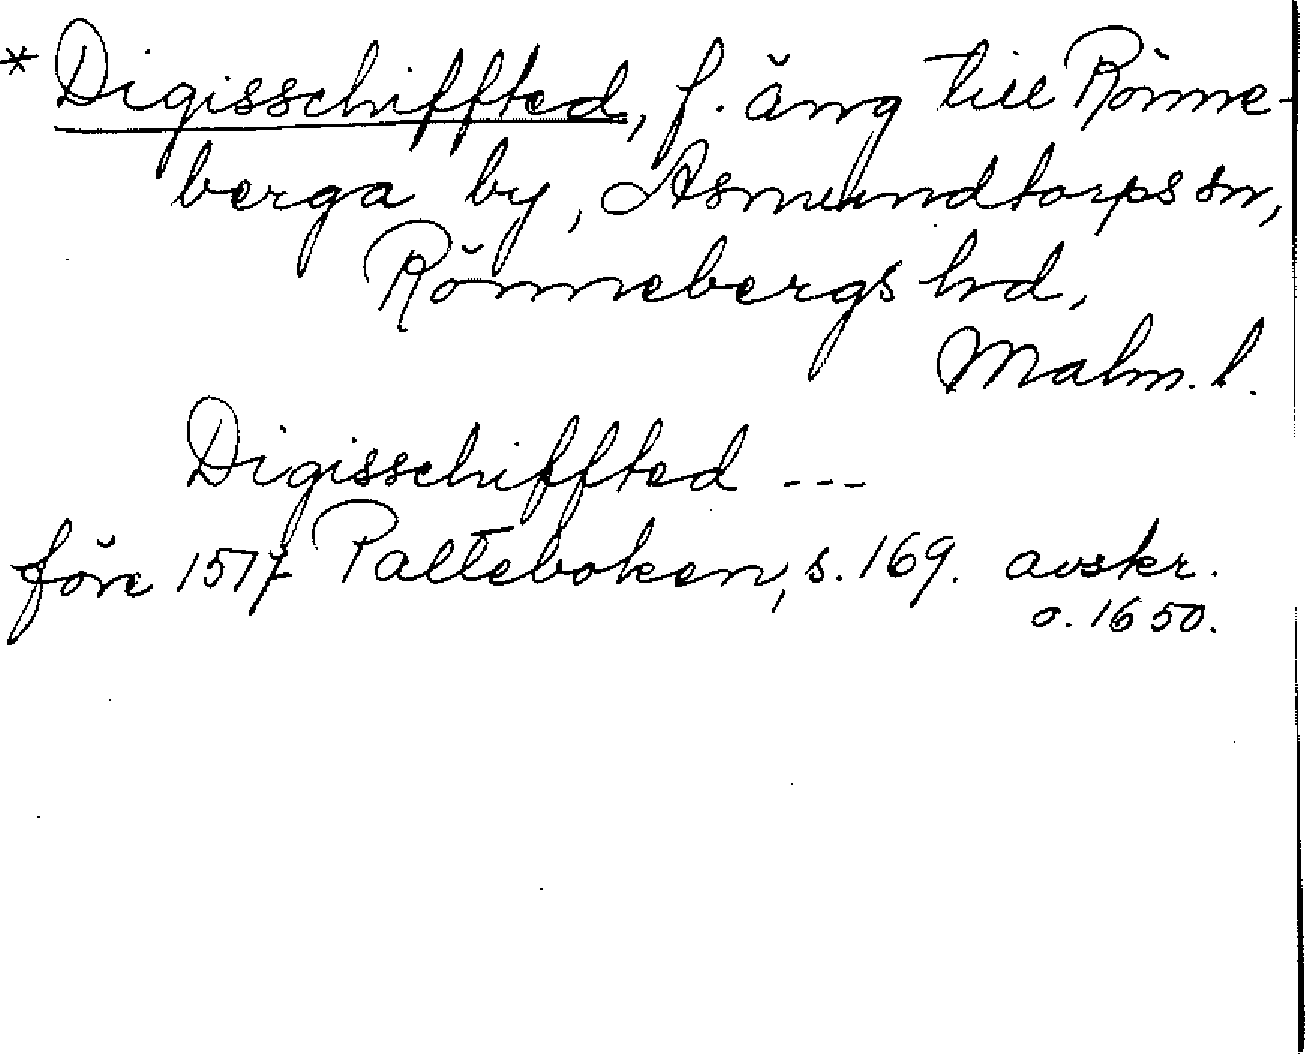 * Digisschiffted, f. äng till Rönne-
berga by, Asmundtorps sn,
Rönnebergs hd,
Malm. l.
Digisschiffted ---
före 1517 Palteboken, s. 169. avskr.
o. 1650.